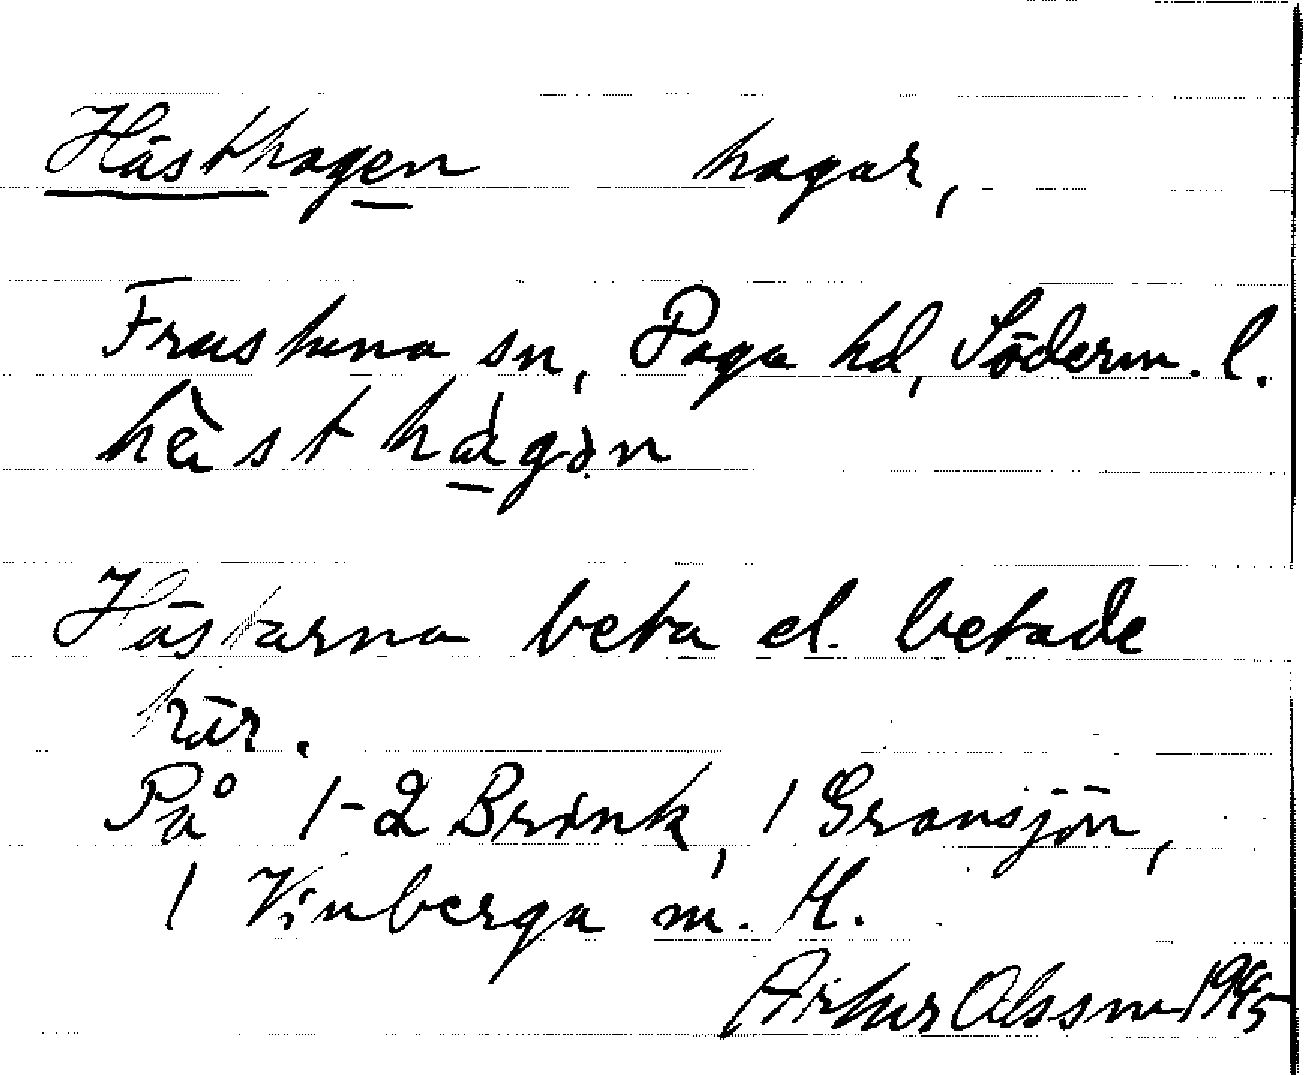 Hästhagen hagar,
Frustuna sn, Daga hd, Söderm. l.
hè̀st hágan
Hästarna beta el. betade
här.
På 1-2 Brink, 1 Gransjön,
1 Vinberga m. fl.
Artur Olsson 1945